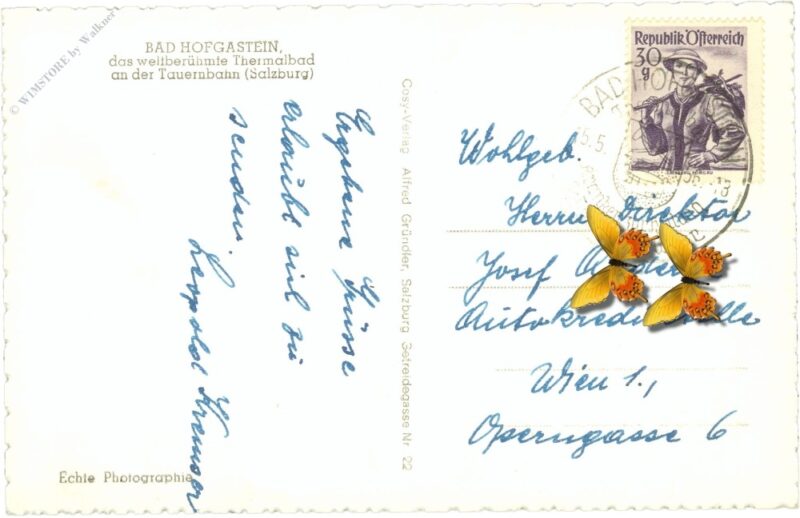 © WIMSTORE by Walkner
BAD HOFGASTEIN,
das weltberühmte Thermalbad
an der Tauernbahn (Salzburg)
Ergebene Grüsse
erlaubt sich zu
senden.
Leopold Kremser
Echte Photographie
Cosy-Verlag Alfred Gründler, Salzburg, Getreidegasse Nr. 22
Republik Österreich
30
g
BAD HOF
Wohlgeb.
Herrn Direktor
Josef
Wien 1.,
Operngasse 6